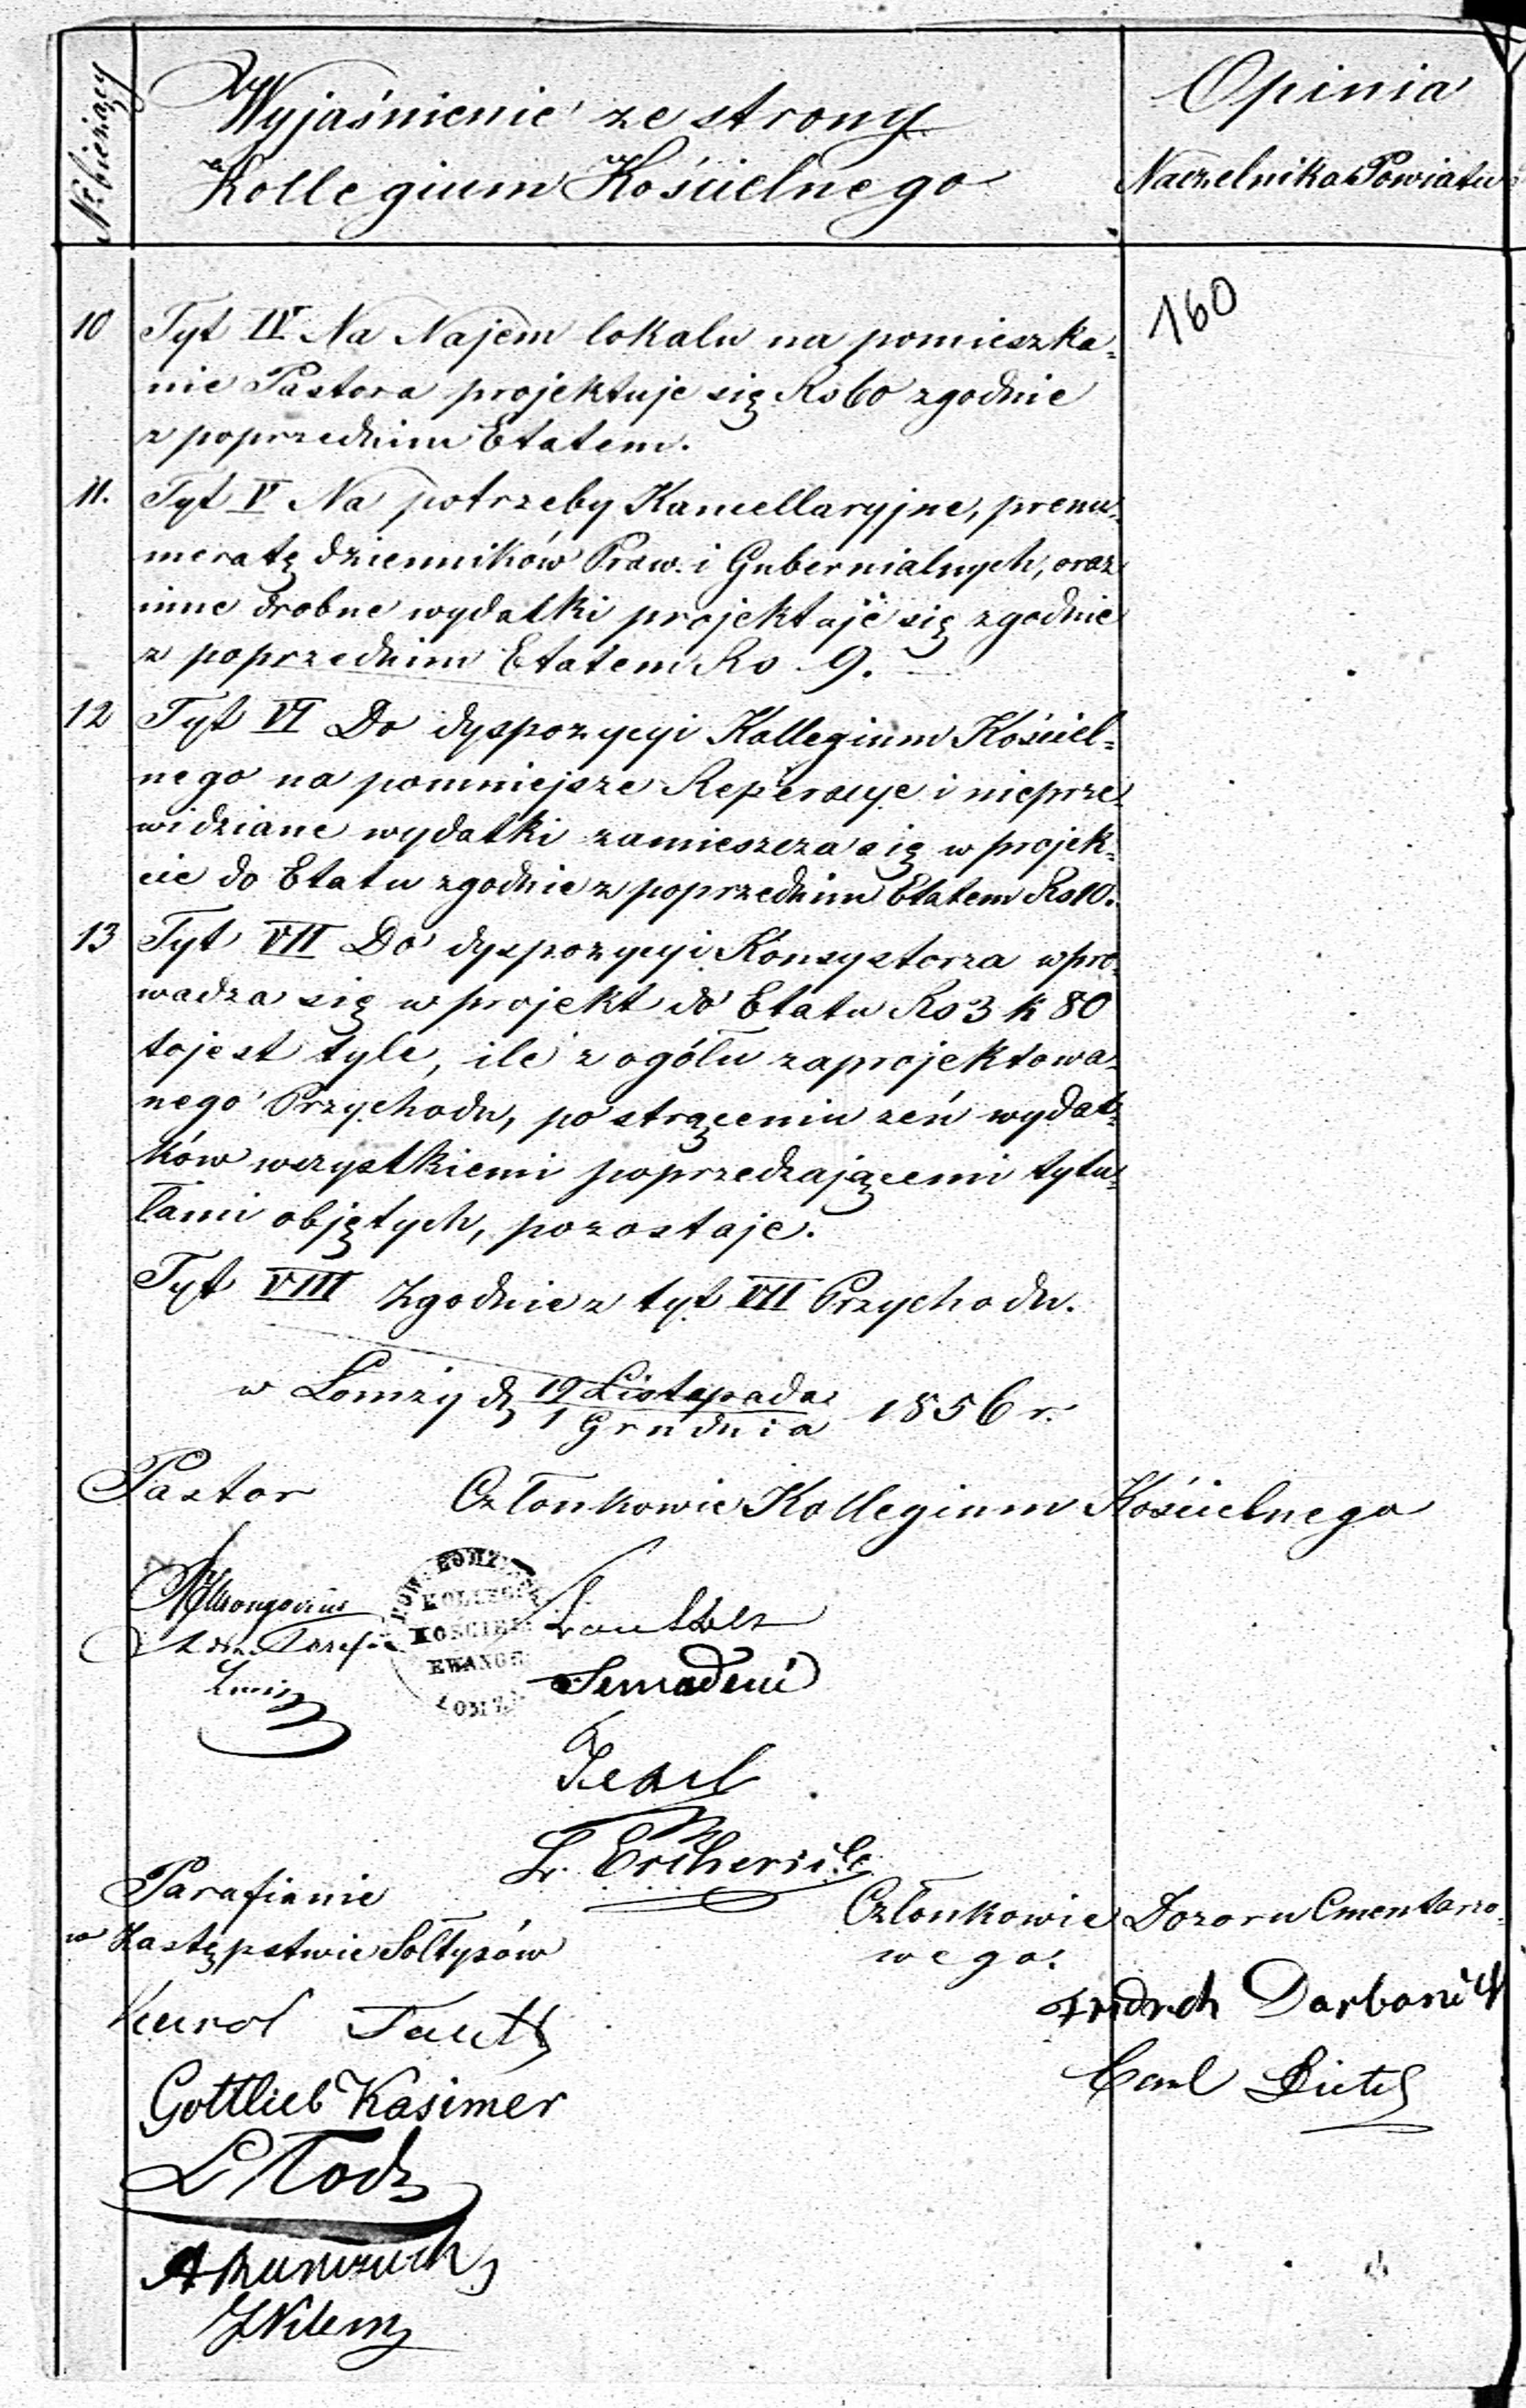 Nr bieżący
Wyjaśnienie ze strony
Kollegium Kościelnego
Opinia
Naczelnika Powiatu
160
10 Tyt IV Na Najem lokalu na pomieszka-
nie Pastora projektuje się Rs 60 zgodnie
z poprzednim Etatem.
11. Tyt V Na potrzeby Kancellaryjne, prenu-
meratę dzienników Praw i Gubernialnych, oraz
inne drobne wydatki projektuje się zgodnie
z poprzednim Etatem Rs 9.
12 Tyt VI Do dyspozycyi Kollegium Kościel-
nego na pomniejsze Reperacye i nieprze-
widziane wydatki zamieszcza się w projek-
cie do Etatu zgodnie z poprzednim Etatem Rs 10.
13 Tyt VII Do dyspozycyi Konsystorza wpro-
wadza się w projekt do Etatu Rs 3 k 80
to jest tyle, ile z ogółu zaprojektowa-
nego Przychodu, po strąceniu zeń wydat-
ków wszystkiemi poprzedzającemi tytu-
łami objętych, pozostaje.
Tyt VIII Zgodnie z tyt VII Przychodu.
w Łomży d 19 Listopada
1 Grudnia 1856 r.
Pastor Członkowie Kollegium Kościelnego
KOŚCIEL
EWANGE
Semadeni
Parafianie
w Zastępstwie Sołtysów
Członkowie Dozoru Cmentarzo-
wego.
Karol
Gottlieb Kasimer
Carl